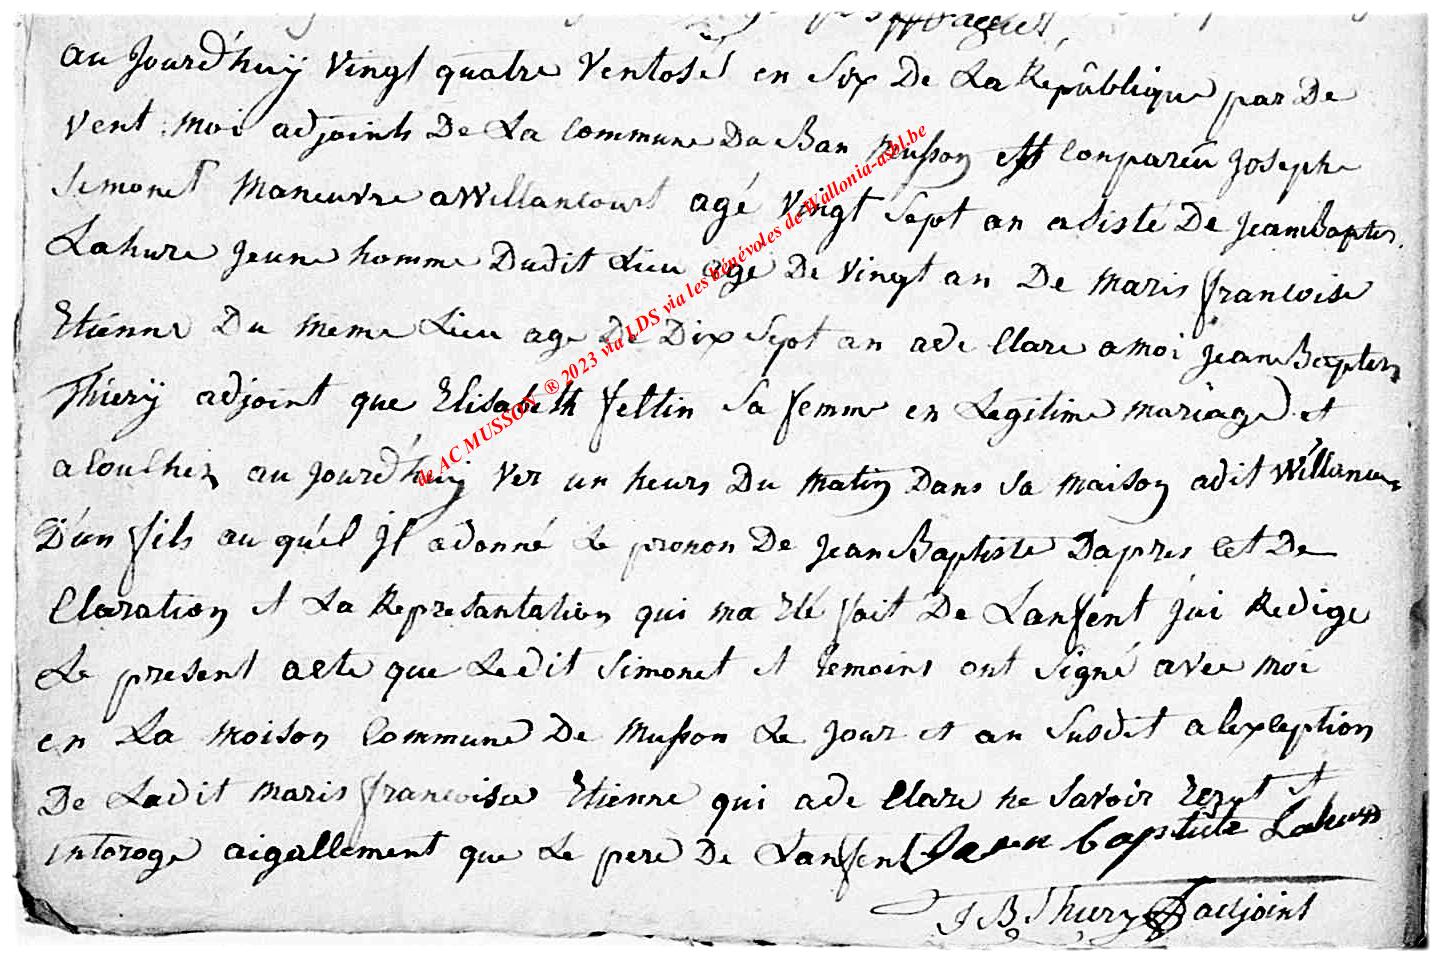 au Jourd'huÿ Vingt quatre Ventose en Six De La République par De
vent moi adjoints De La Commune Du Ban Musson est Comparéu Joseph
Simonet Maneuvre a Willancourt agé Vingt Sept an adisté De Jean Baptis.
Lahure Jeune homme Dudit Lieu agé De Vingt an De Maris francoise
Etienne Du meme Lieu age De Dix Sept an ade Clare amoi Jean Baptis
Thierÿ adjoint que Elisabeth feltin Sa femme en Legitime mariage et
a Couchez au Jourd'huÿ Ver un heurs Du Matin Dans Sa maison adit Willancou
D'un fils au qu'el Jl adonné Le pronon De Jean Baptiste Dapres Cet De
Claration et La Représantation qui ma Eté fait De Lanfent J'ai Redige
Le present acte que Ledit Simonet et temoins ont Signé avec moi
en La Moison Commune De Musson Le Jour et an Susdit a lexception
De Ladit Maris francoise Etienne qui ade Clare ne Savoir et
intoroge aigallement que Le pere De Lanfent Jean baptiste Lahure
J B Thiery adjoint
de AC MUSSON ® 2023 via LDS via les bénévoles de Wallonia-asbl.be